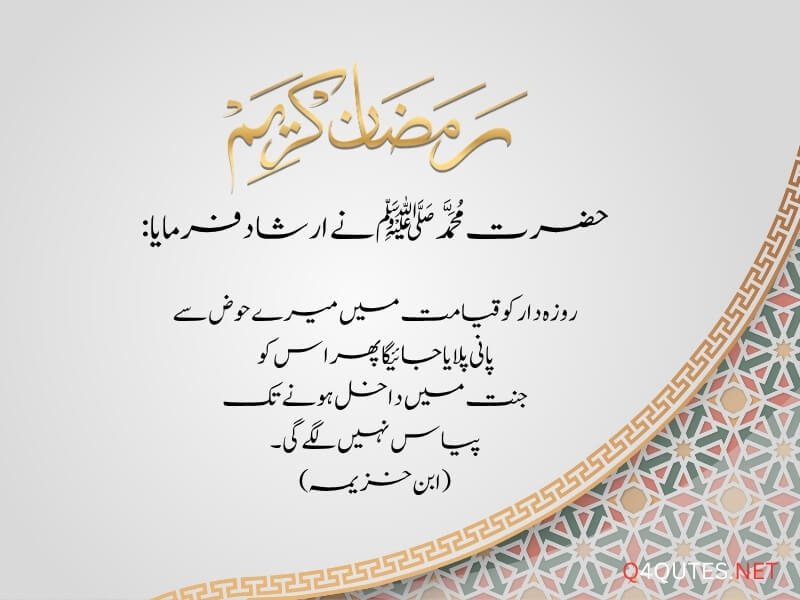 رمضان كريم
حضرت محمّد ﷺ نے ارشاد فرمایا:
روزہ دار کو قیامت میں میرے حوض سے
پانی پلایا جائیگا پھر اس کو
جنت میں داخل ہونے تک
پیاس نہیں لگے گی۔
(ابن خزیمہ)
Q4QUTES.NET